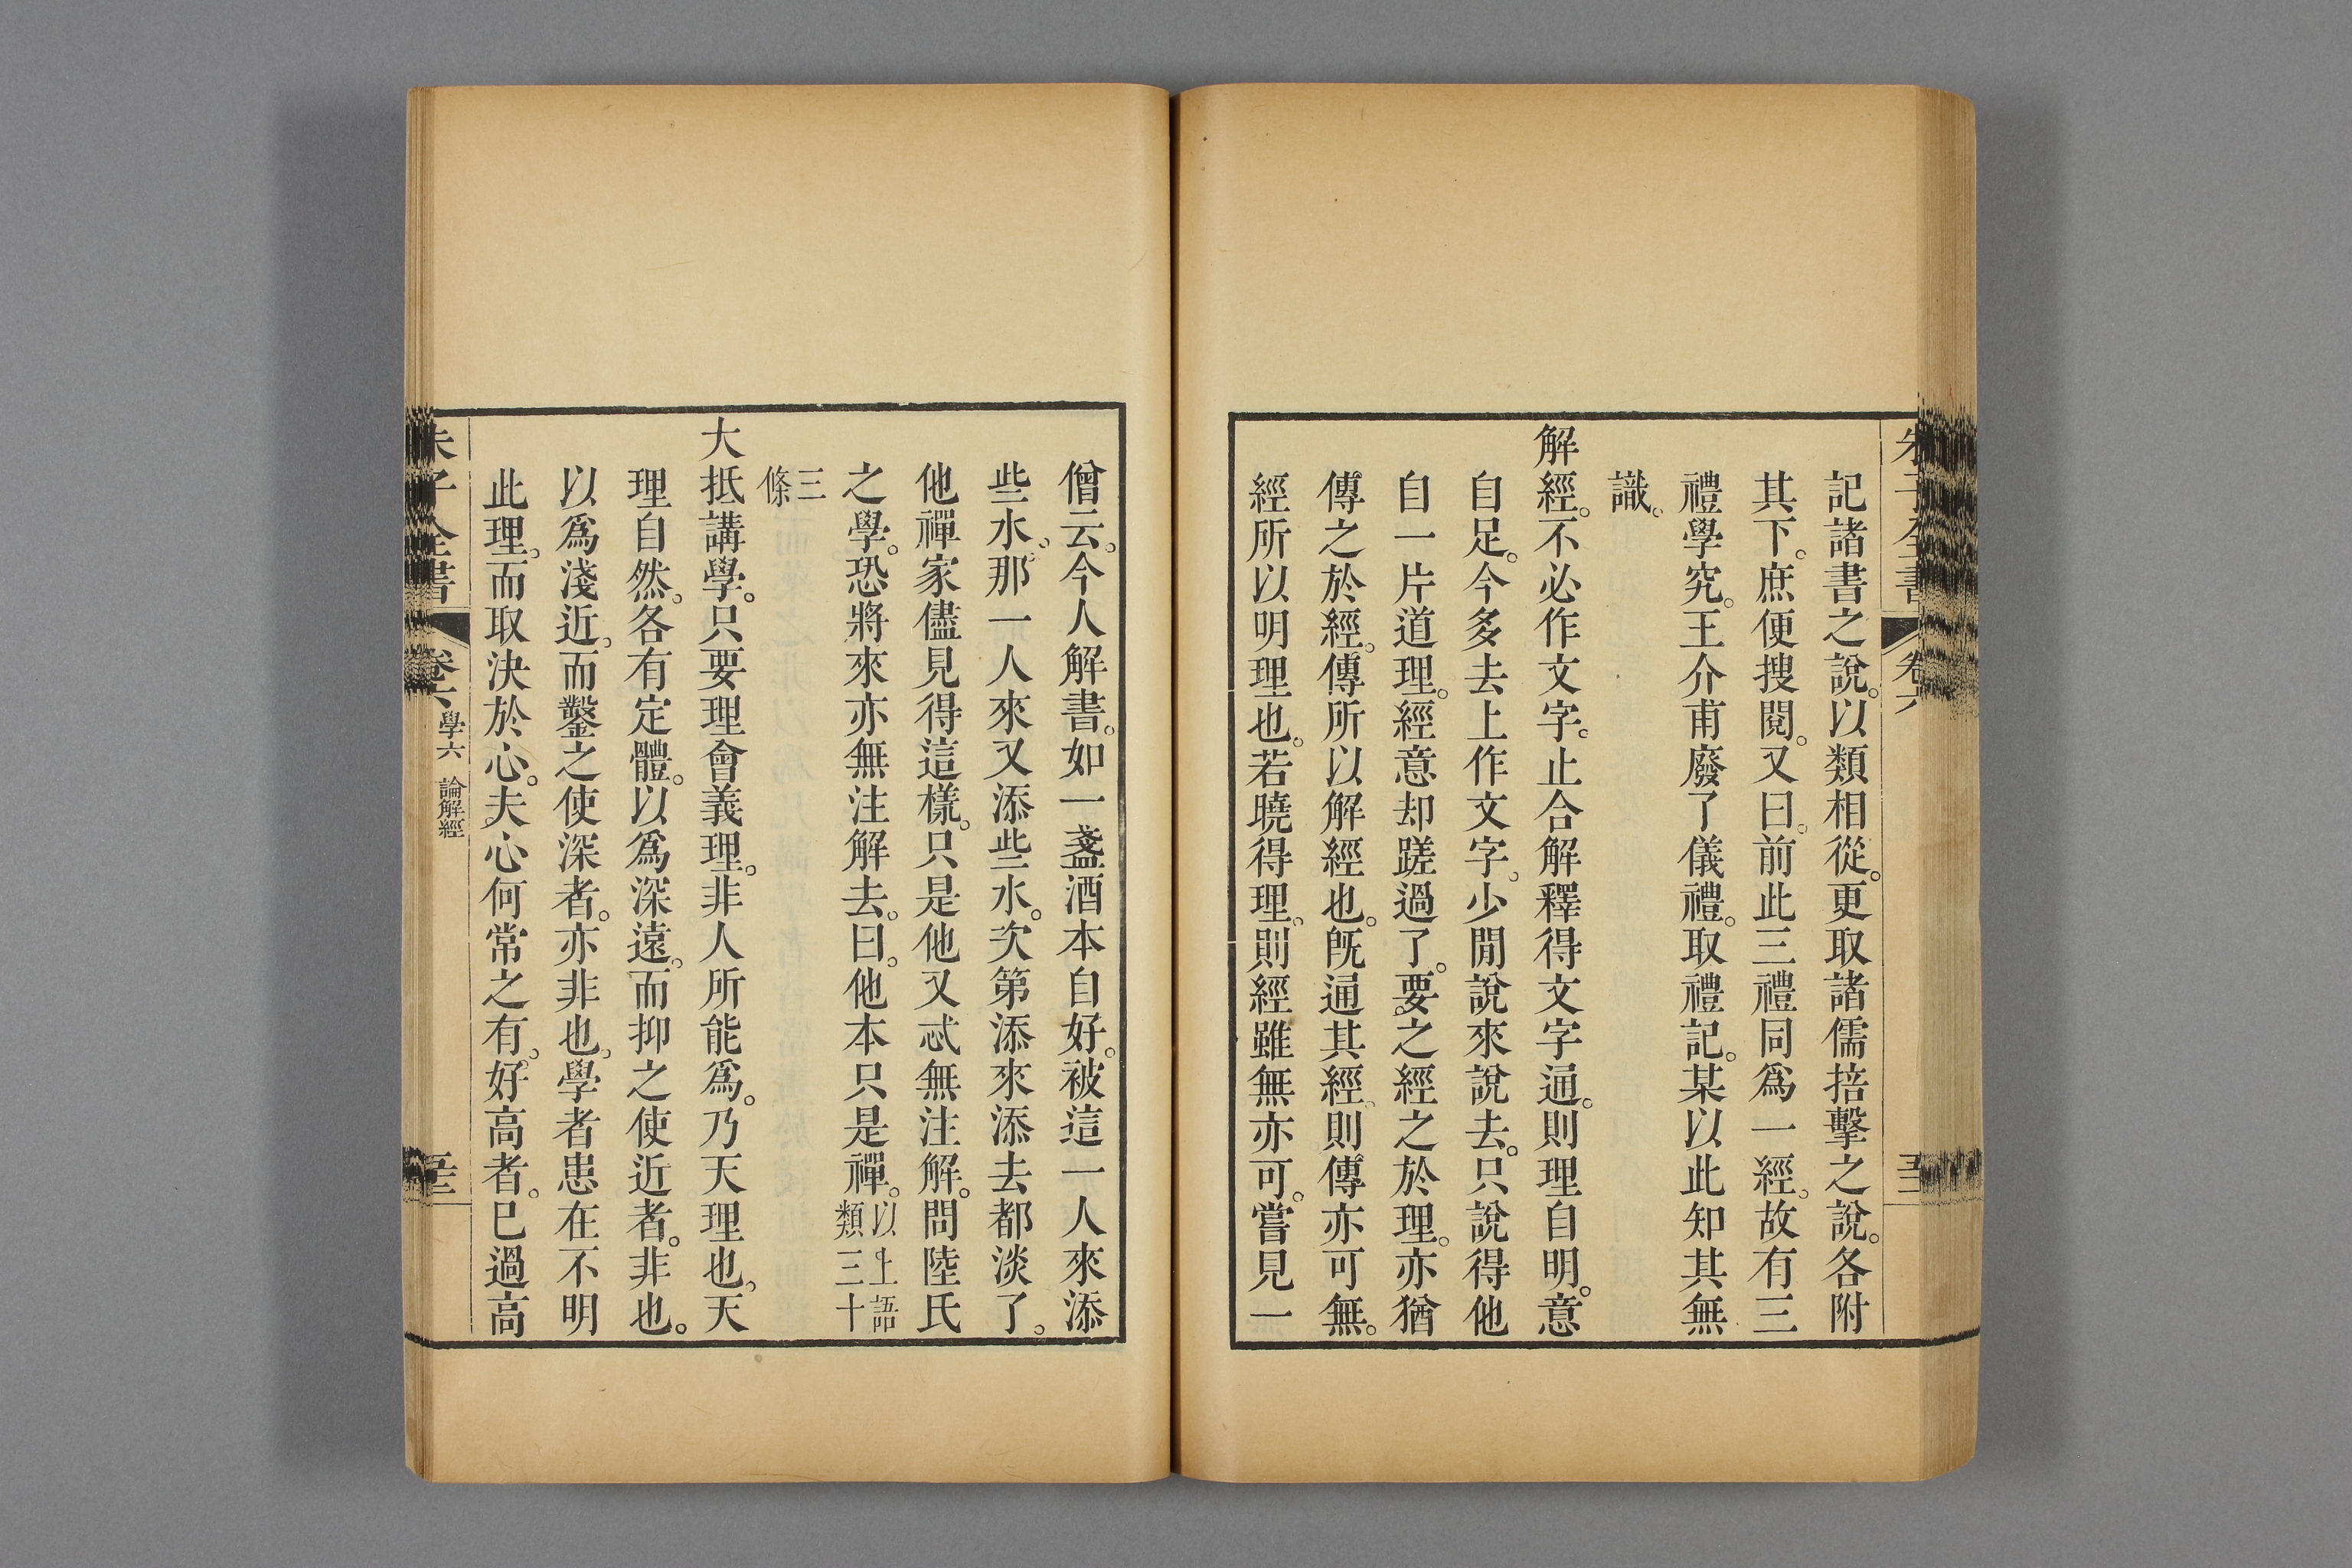 記諸書之說。以類相從。更取諸儒掊擊之說。各附
其下。庶便搜閱。又曰。前此三禮同爲一經。故有三
禮學究。王介甫廢了儀禮。取禮記。某以此知其無
識。
解經。不必作文字。止合解釋得文字通。則理自明。意
自足。今多去上作文字。少閒說來說去。只說得他
自一片道理。經意却蹉過了。要之經之於理。亦猶
傳之於經。傳所以解經也。旣通其經。則傳亦可無。
經所以明理也。若曉得理。則經雖無亦可。嘗見一
僧云。今人解書。如一盞酒本自好。被這一人來添
些水。那一人來又添些水。次第添來添去都淡了。
他禪家儘見得這樣。只是他又忒無注解。問陸氏
之學。恐將來亦無注解去。曰。他本只是禪。以上語
類三十
三
條
大抵講學。只要理會義理。非人所能爲。乃天理也。天
理自然。各有定體。以爲深遠。而抑之使近者。非也。
以爲淺近。而鑿之使深者。亦非也。學者患在不明
此理。而取決於心。夫心何常之有。好高者。已過高
朱子全書
卷六
學六 論解經